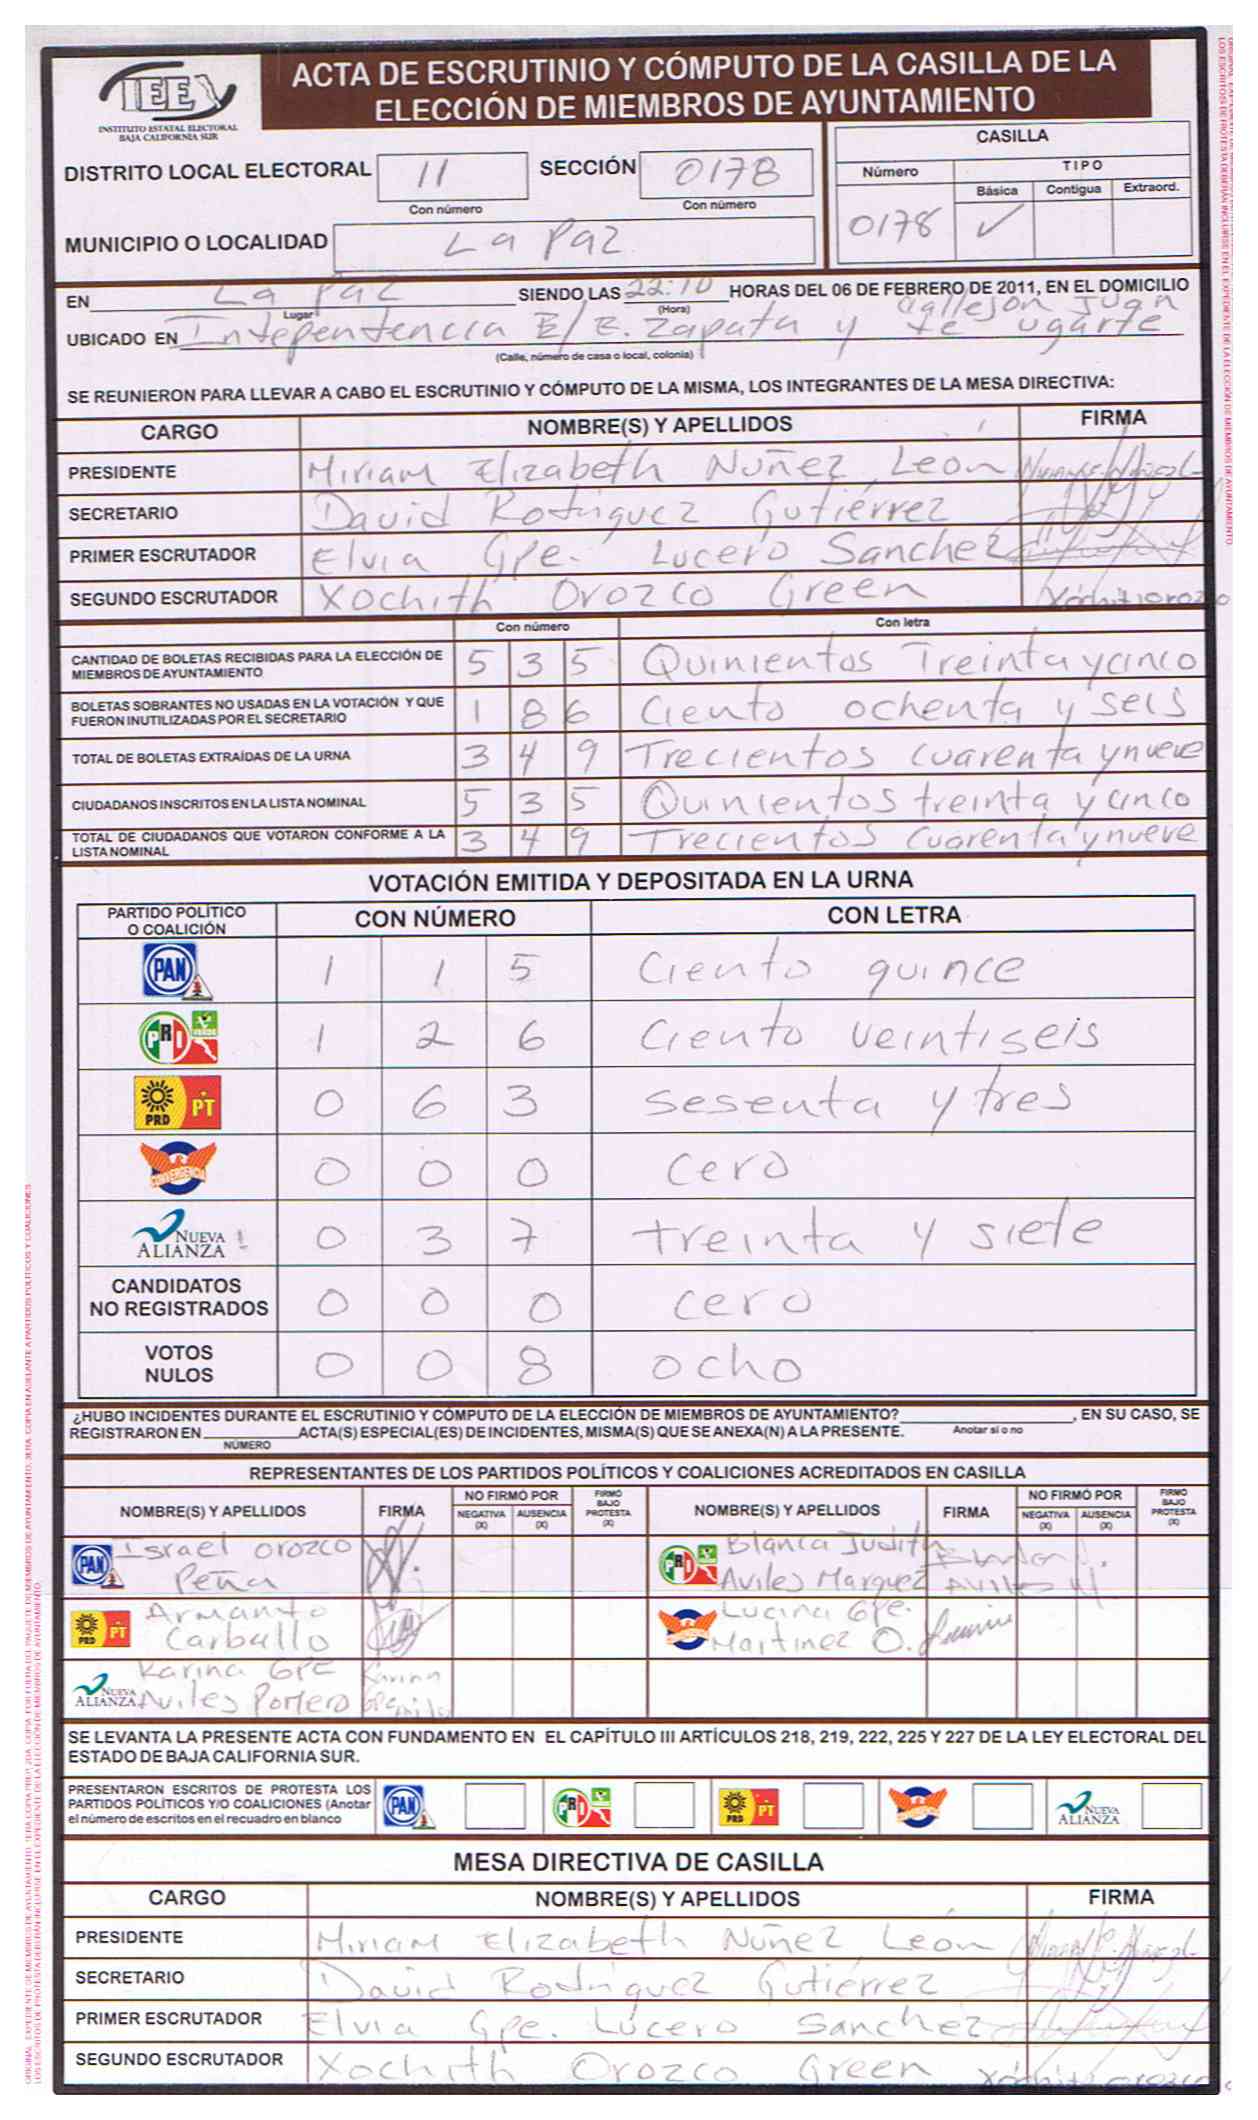 IEE
INSTITUTO ESTATAL ELECTORAL
BAJA CALIFORNIA SUR
ACTA DE ESCRUTINIO Y CÓMPUTO DE LA CASILLA DE LA
ELECCIÓN DE MIEMBROS DE AYUNTAMIENTO
DISTRITO LOCAL ELECTORAL 11 SECCIÓN 0178
Con número Con número
MUNICIPIO O LOCALIDAD La Paz
CASILLA
Número TIPO
Básica Contigua Extraord.
0178 ✓
EN La Paz SIENDO LAS 22:10 HORAS DEL 06 DE FEBRERO DE 2011, EN EL DOMICILIO
Lugar (Hora)
callejon Juan
UBICADO EN Intependencia E/E. Zapata y te ugarte
(Calle, número de casa o local, colonia)
SE REUNIERON PARA LLEVAR A CABO EL ESCRUTINIO Y CÓMPUTO DE LA MISMA, LOS INTEGRANTES DE LA MESA DIRECTIVA:
CARGO NOMBRE(S) Y APELLIDOS FIRMA
PRESIDENTE Miriam Elizabeth Nuñez León
SECRETARIO David Rodriguez Gutiérrez
PRIMER ESCRUTADOR Elvia Gpe. Lucero Sanchez
SEGUNDO ESCRUTADOR Xochith Orozco Green Xóchitl orozco
Con número Con letra
CANTIDAD DE BOLETAS RECIBIDAS PARA LA ELECCIÓN DE
MIEMBROS DE AYUNTAMIENTO 5 3 5 Quinientos Treinta y cinco
BOLETAS SOBRANTES NO USADAS EN LA VOTACIÓN Y QUE
FUERON INUTILIZADAS POR EL SECRETARIO 1 8 6 Ciento ochenta y seis
TOTAL DE BOLETAS EXTRAÍDAS DE LA URNA 3 4 9 Trecientos cuarenta y nueve
CIUDADANOS INSCRITOS EN LA LISTA NOMINAL 5 3 5 Quinientos treinta y cinco
TOTAL DE CIUDADANOS QUE VOTARON CONFORME A LA
LISTA NOMINAL 3 4 9 Trecientos cuarenta y nueve
VOTACIÓN EMITIDA Y DEPOSITADA EN LA URNA
PARTIDO POLÍTICO
O COALICIÓN CON NÚMERO CON LETRA
PAN 1 1 5 Ciento quince
PRI VERDE 1 2 6 Ciento veintiseis
PRD PT 0 6 3 sesenta y tres
CONVERGENCIA 0 0 0 cero
NUEVA
ALIANZA 0 3 7 treinta y siete
CANDIDATOS
NO REGISTRADOS 0 0 0 cero
VOTOS
NULOS 0 0 8 ocho
¿HUBO INCIDENTES DURANTE EL ESCRUTINIO Y CÓMPUTO DE LA ELECCIÓN DE MIEMBROS DE AYUNTAMIENTO? , EN SU CASO, SE
REGISTRARON EN ACTA(S) ESPECIAL(ES) DE INCIDENTES, MISMA(S) QUE SE ANEXA(N) A LA PRESENTE. Anotar sí o no
NÚMERO
REPRESENTANTES DE LOS PARTIDOS POLÍTICOS Y COALICIONES ACREDITADOS EN CASILLA
NOMBRE(S) Y APELLIDOS FIRMA NO FIRMÓ POR NEGATIVA (X) AUSENCIA (X) FIRMÓ BAJO PROTESTA (X) NOMBRE(S) Y APELLIDOS FIRMA NO FIRMÓ POR NEGATIVA (X) AUSENCIA (X) FIRMÓ BAJO PROTESTA (X)
PAN Israel Orozco PRI Blanca Judith
Peña Aviles Marquez
PRD PT Armanto Lucina Gpe.
Carballo Martinez O.
NUEVA Karina GPE Karina
ALIANZA Aviles Portero
SE LEVANTA LA PRESENTE ACTA CON FUNDAMENTO EN EL CAPÍTULO III ARTÍCULOS 218, 219, 222, 225 Y 227 DE LA LEY ELECTORAL DEL
ESTADO DE BAJA CALIFORNIA SUR.
PRESENTARON ESCRITOS DE PROTESTA LOS
PARTIDOS POLÍTICOS Y/O COALICIONES (Anotar
el número de escritos en el recuadro en blanco
PAN PRI PRD PT NUEVA ALIANZA
MESA DIRECTIVA DE CASILLA
CARGO NOMBRE(S) Y APELLIDOS FIRMA
PRESIDENTE Miriam Elizabeth Nuñez León
SECRETARIO David Rodriguez Gutiérrez
PRIMER ESCRUTADOR Elvia Gpe. Lucero Sanchez
SEGUNDO ESCRUTADOR Xochith Orozco Green Xóchitl orozco